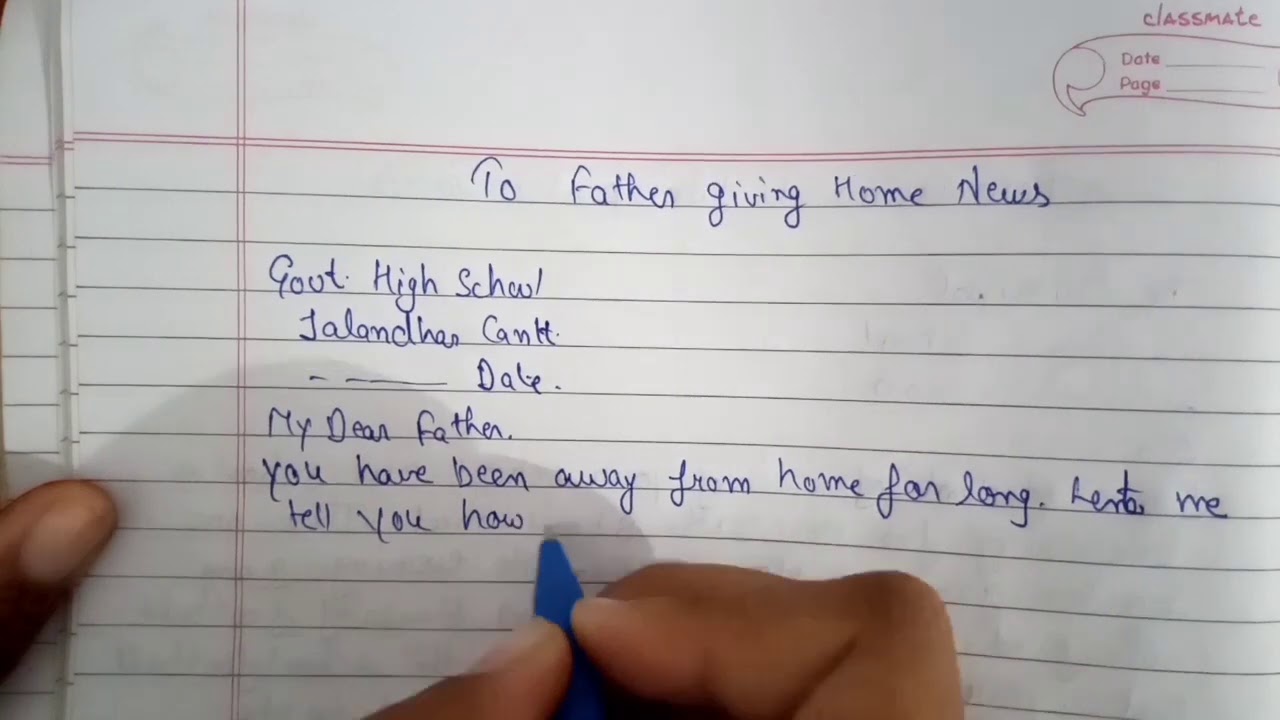 classmate
Date
Page
To Father giving Home News
Govt. High School
Jalandhar Cantt.
- —— Date.
My Dear Father.
you have been away from home for long. me
tell you how